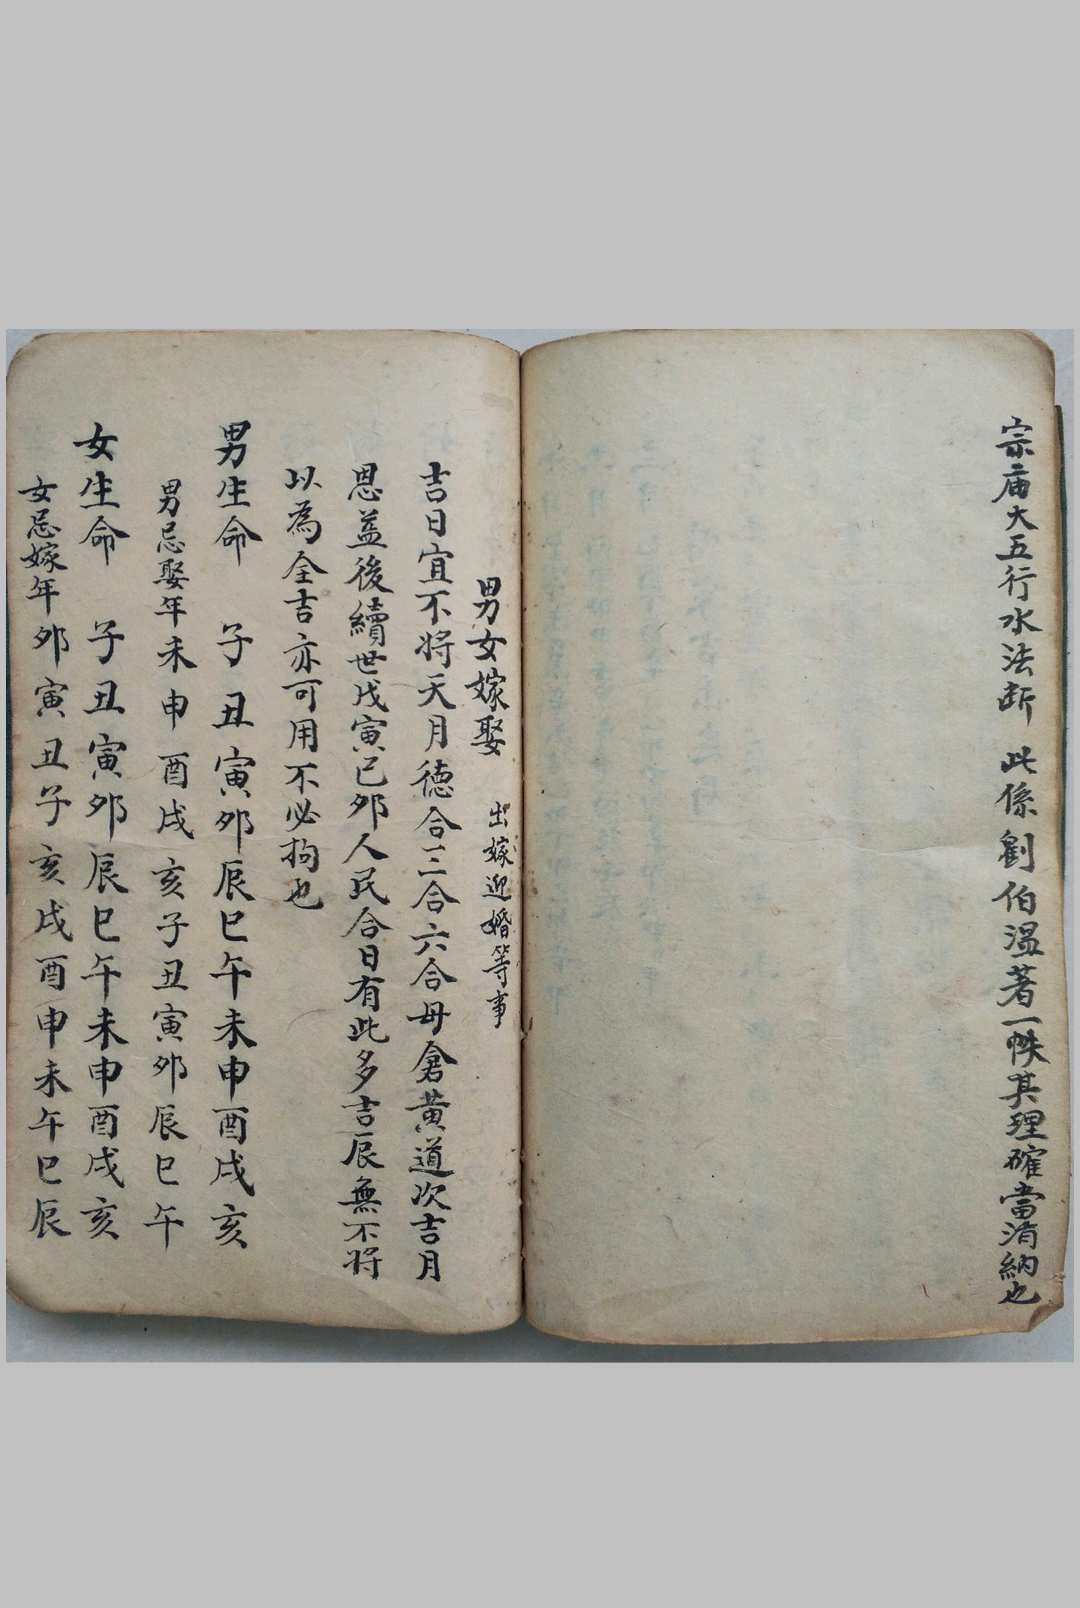 宗庙大五行水法断 此係劉伯温著一帙其理確當洧納也
男女嫁娶 出嫁迎婚等事
吉日宜不将天月德合三合六合母倉黄道次吉月
恩益後續世戊寅己夘人民合日有此多吉辰無不将
以為全吉亦可用不必拘也
男生命 子丑寅夘辰巳午未申酉戌亥
男忌娶年未申酉戌亥子丑寅夘辰巳午
女生命 子丑寅夘辰巳午未申酉戌亥
女忌嫁年夘寅丑子亥戌酉申未午巳辰